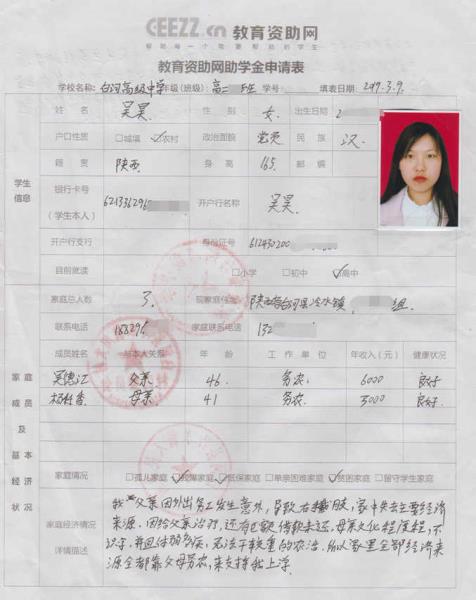 CEEZZ.cn 教育资助网
帮助每一个需要帮助的学生
教育资助网助学金申请表
学校名称: 白河高级中学 年级(班级): 高二 班 学号: 填表日期: 3.9.
姓名 吴昊 性别 女. 出生日期
户口性质 □城镇 ☑农村 政治面貌 党员 民族 汉.
籍贯 陕西 身高 165 邮编
学生
信息
银行卡号
(学生本人)
621336296
开户行名称 吴昊.
开户行支行 身份证号 612430200
目前就读 □小学 □初中 ☑高中
家庭总人数 3. 现家庭住址 陕西省白河县冷水镇 组.
联系电话 188296 家庭联系电话 132
成员姓名 与本人关系 年龄 工作单位 年收入(元) 健康状况
吴德江 父亲 46. 务农. 6000 良好
母亲 41 务农. 3000 良好.
家庭
成员
及
基本
经济
状况
家庭情况 □孤儿家庭 ☑残障家庭 ☑低保家庭 □单亲困难家庭 ☑贫困家庭 □留守学生家庭
家庭经济情况
详情描述
我父亲因外出务工发生意外,导致右 ,家中失去主要经济
来源.因给父亲治疗,还有巨额借款未还.母亲文化程度低,不
识字,并且体弱多疾,无法干较重的农活.所以家里全部经济来
源全都靠父母务农,来支持我上学.